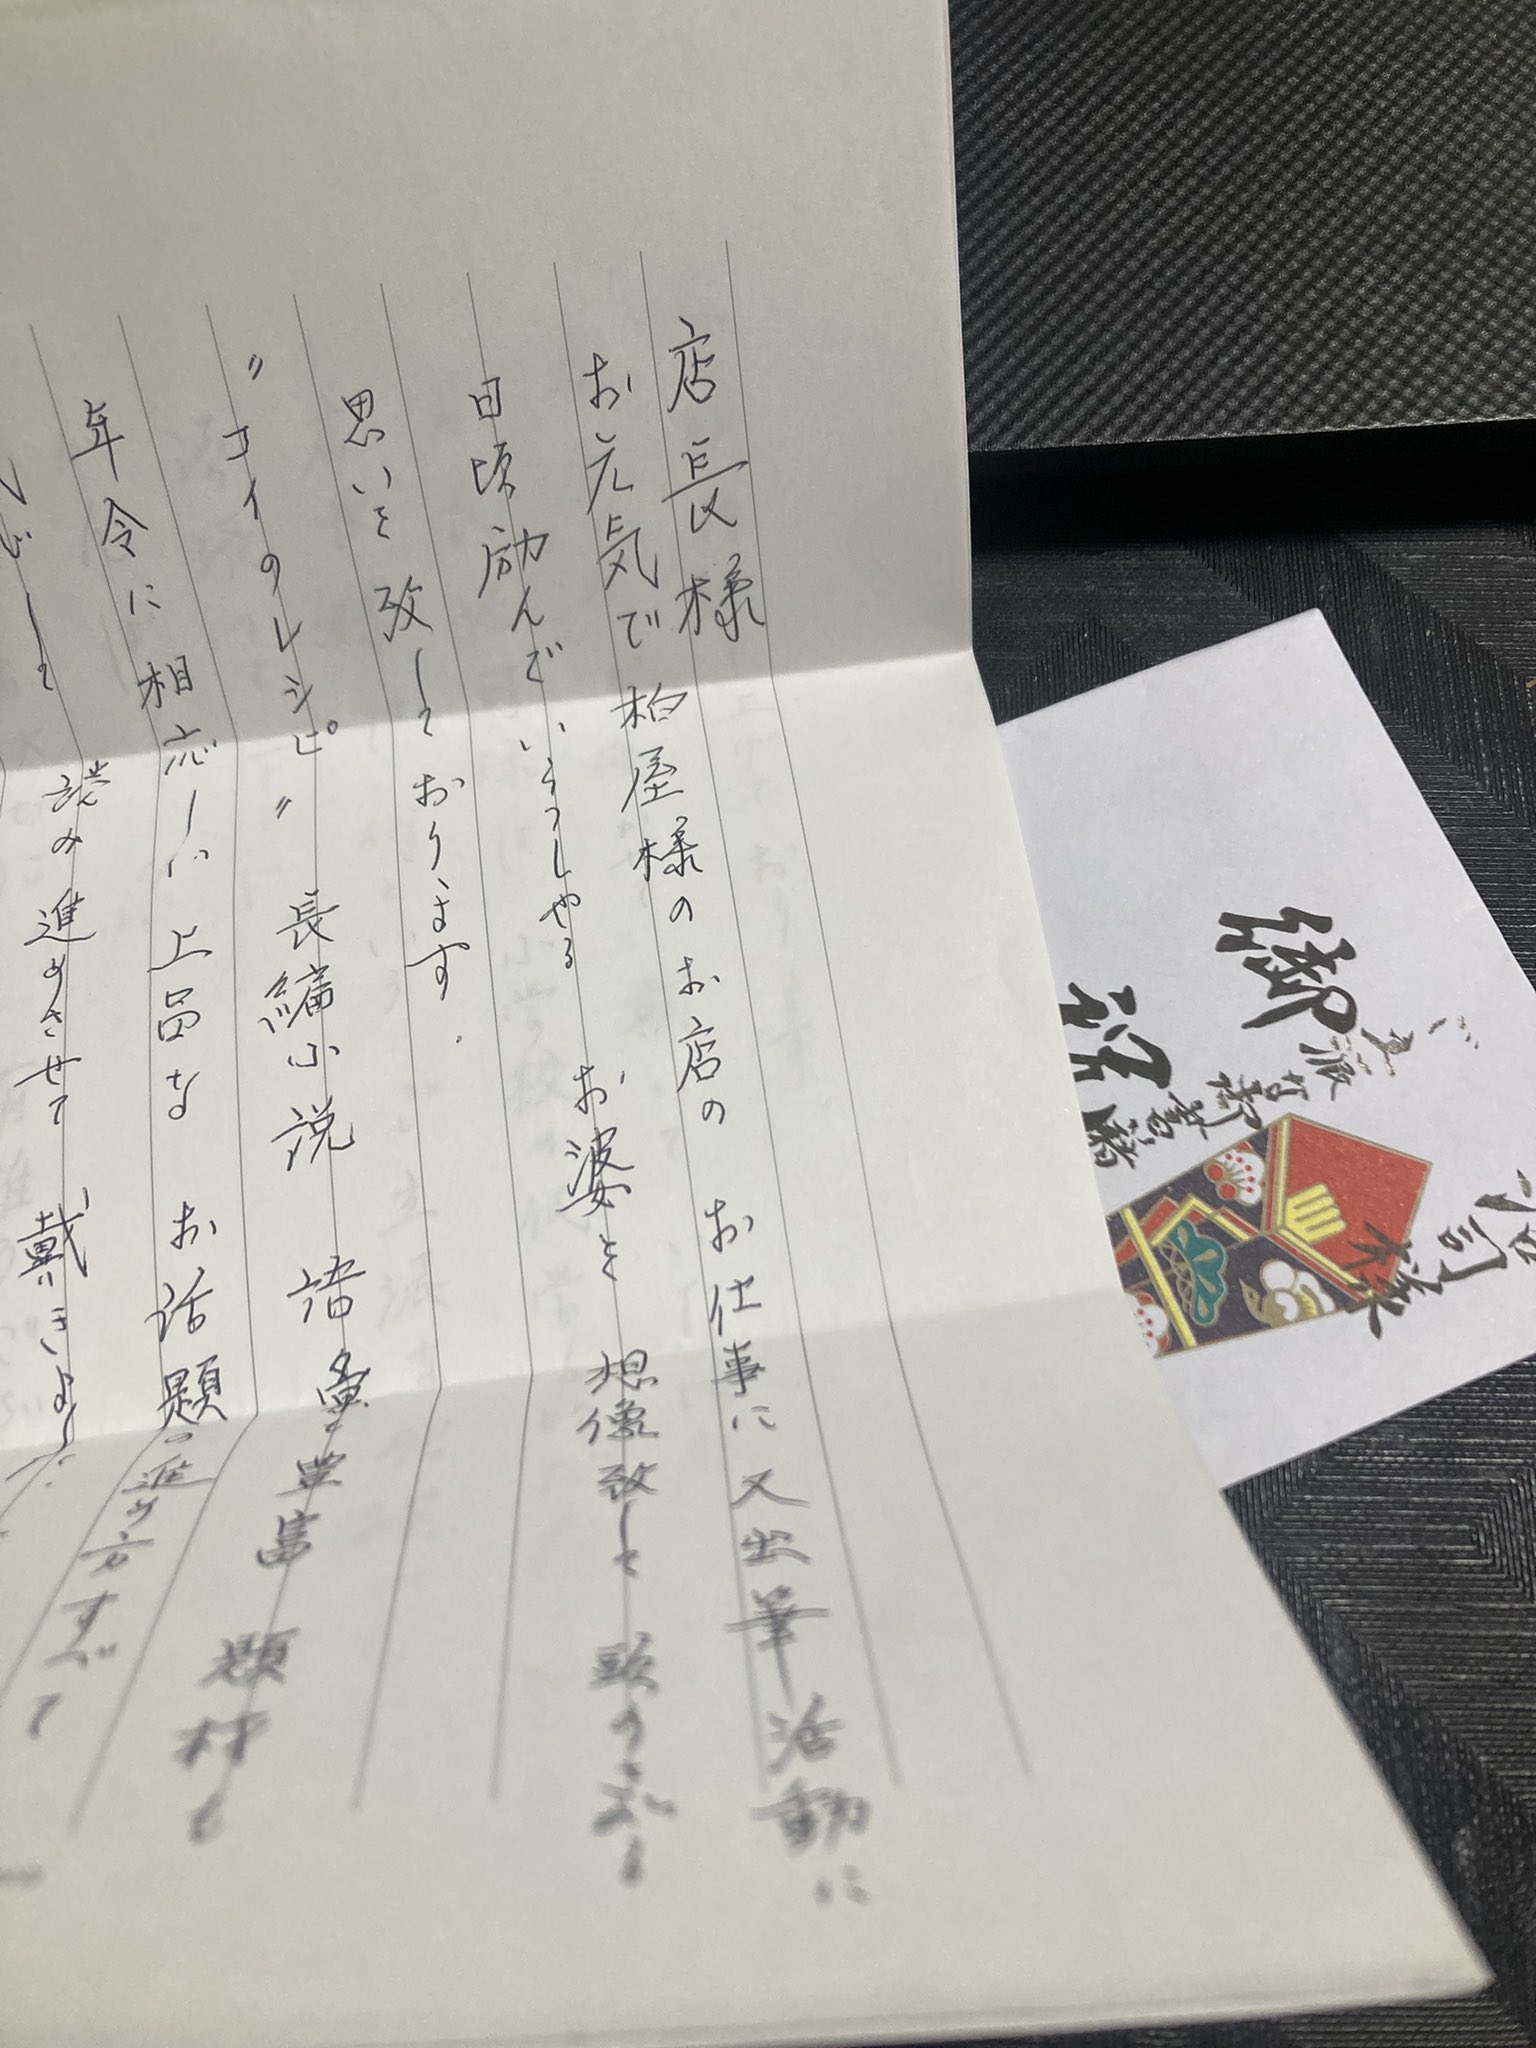 店長様
お元気で柏屋様のお店の お仕事に 又出筆活動に
日頃励んでいらっしゃる お姿を 想像致して 頭の下
思いを致して おります.
〃コイのレシピ〃 長編小説 語彙豊富 題材も
年令に相応しい 上品な お話題の進め方すべて
して 読み進めさせて 戴きました
御
立派な御書籍
司
様